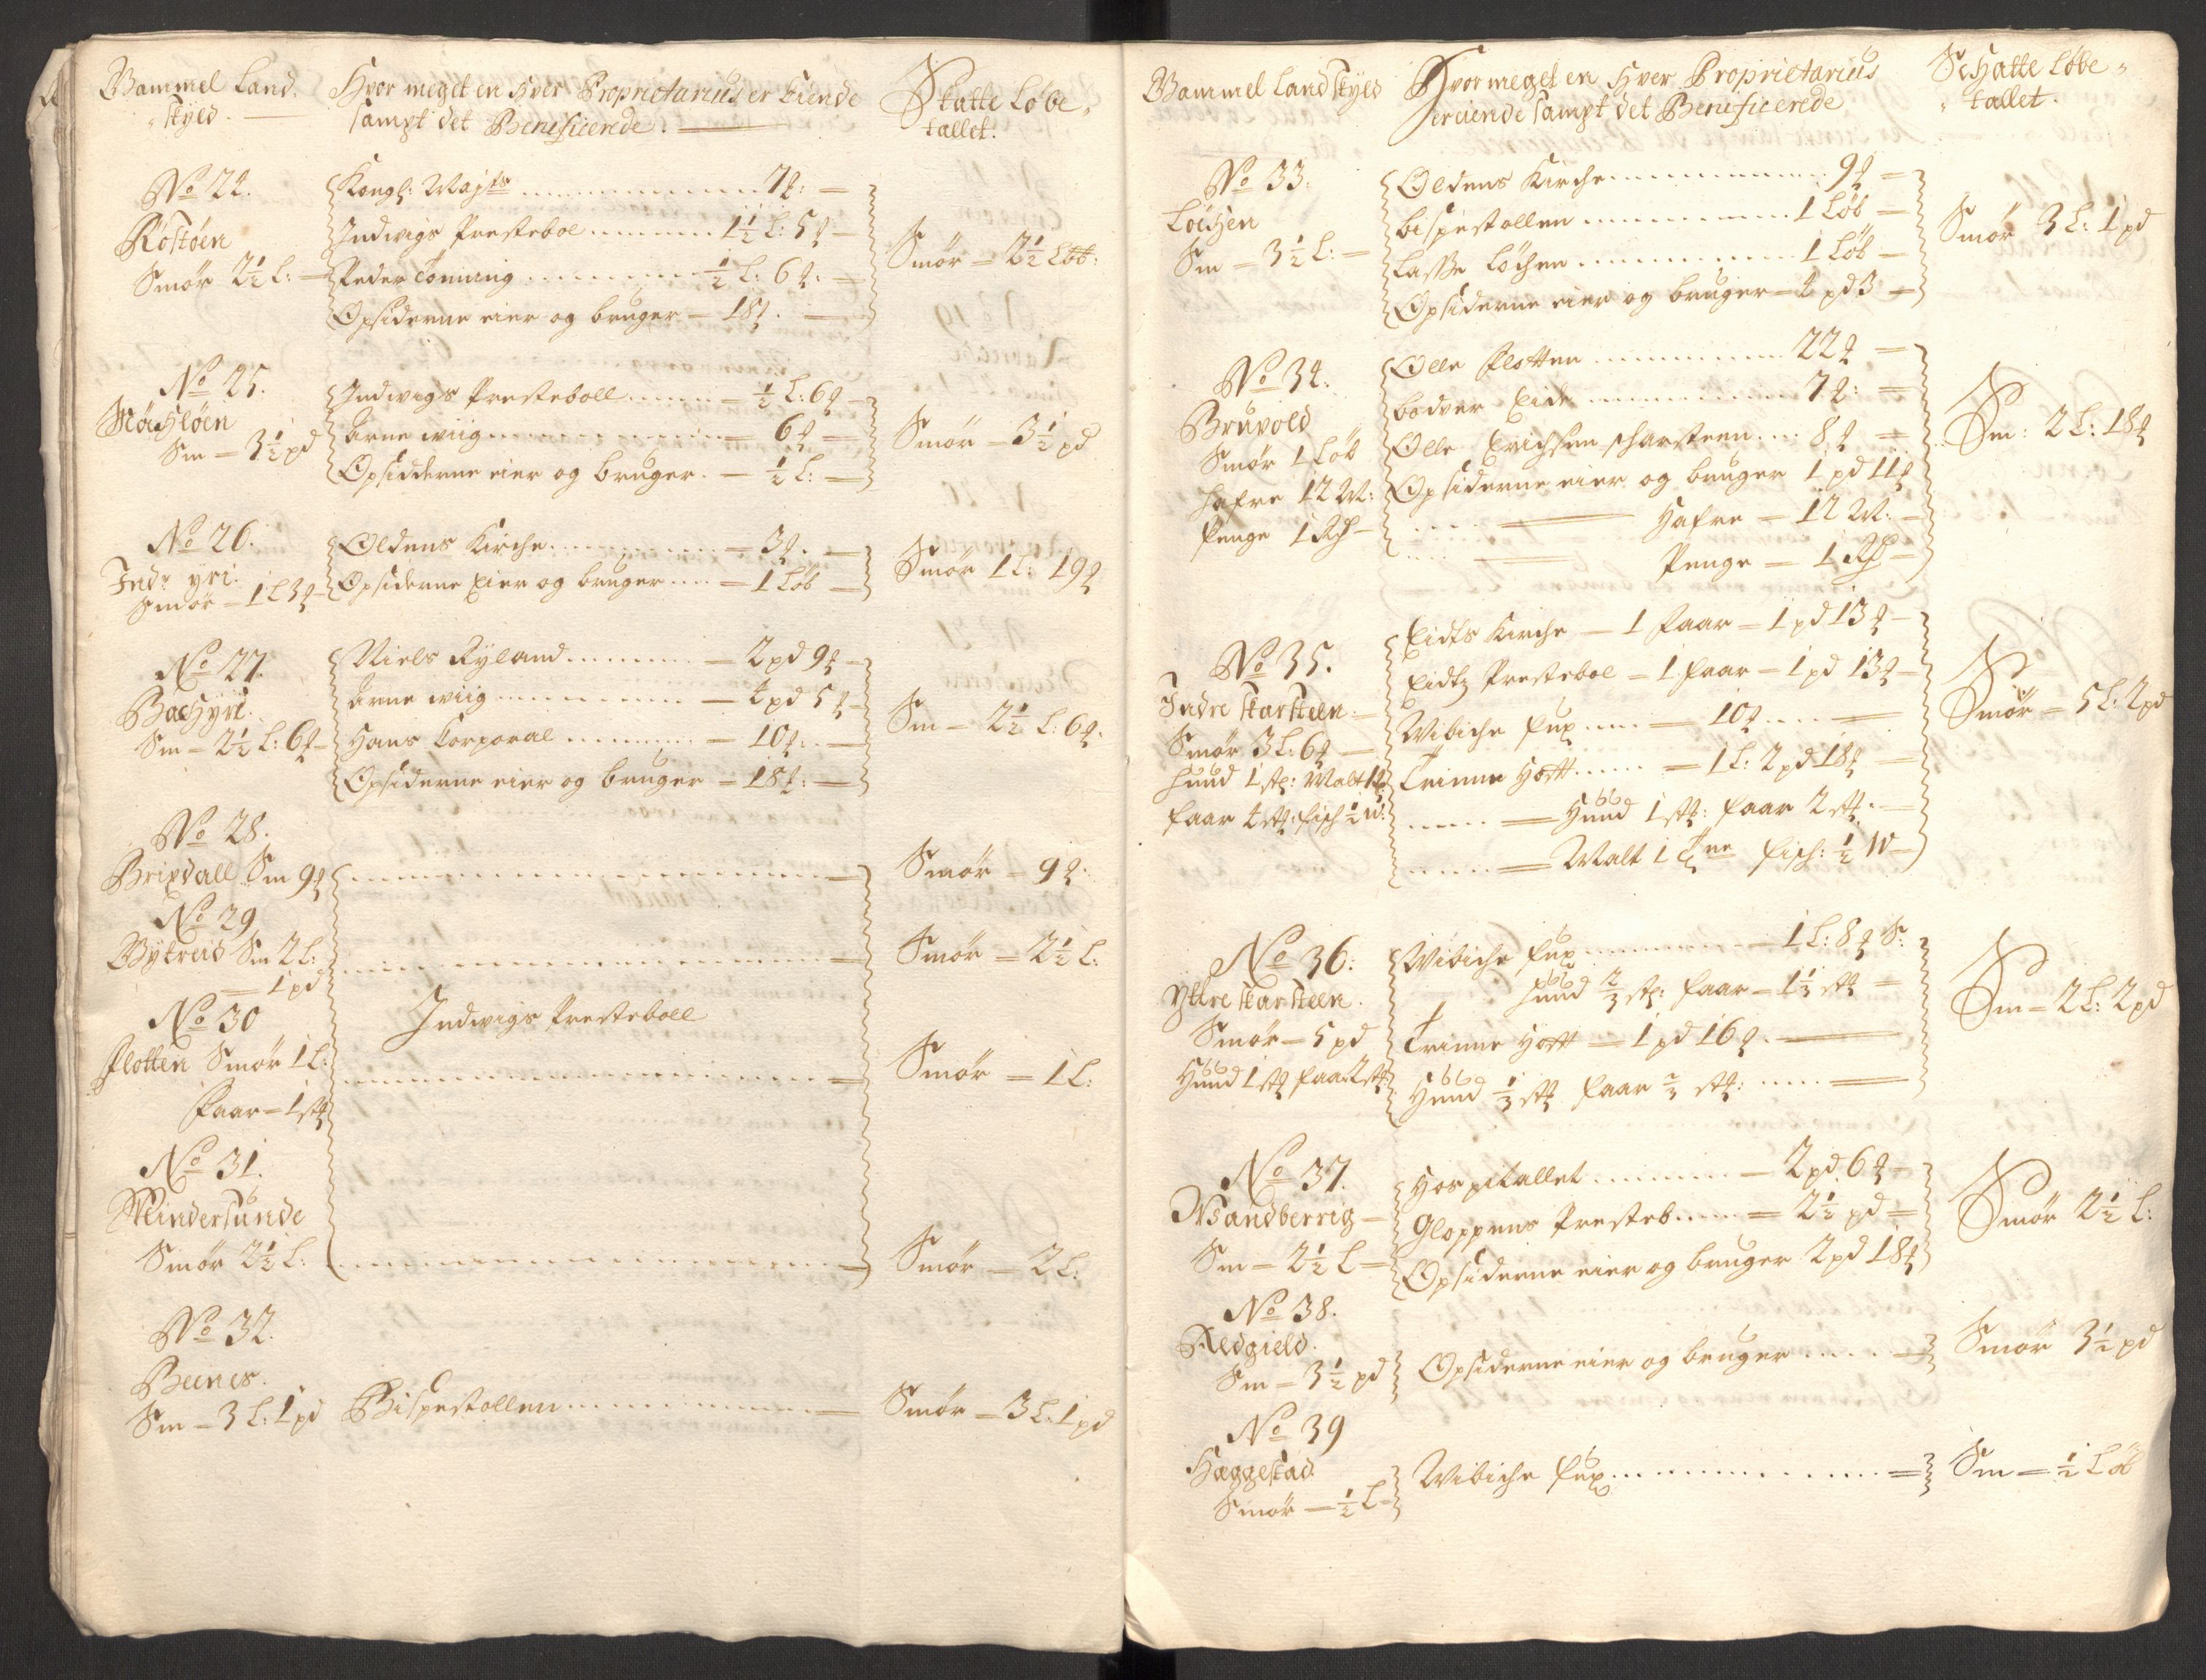 Gammel Land
skyld.
Hvor meget en Hver Proprietarius er Eiende
sampt det Benificerede.
Skatte Løbe
tallet.
No 24.
Røstøen
Smør 2½ L:
Kongl: Maj:ts 7 ℔:
Indvigs Prestebol 1½ L: 5 ℔
Peder Tønning ½ L: 6 ℔:
Opsiderne eier og bruger - 18 ℔.
Smør - 2½ Løb:
No 25.
Møchløen
Sm - 3½ pd
Indvigs Presteboll ½ L: 6 ℔
Arne wiig 6 ℔
Opsidderne eier og bruger. - ½ L:
Smør - 3½ pd
No 26.
Indr yri.
Smør - 1 L 3 ℔
Oldens Kirche 3 ℔.
Opsiderne Eier og bruger - 1 Løb
Smør 1 L: 19 ℔
No 27.
Bachyri.
Sm - 2½ L: 6 ℔
Niels Ryland - 2 pd 9 ℔
Arne wiig - 4 pd 5 ℔
Hans Corporal - 10 ℔:
Opsiderne eier og bruger - 18 ℔:
Sm - 2½ L: 6 ℔.
No 28.
Brixdall Sm 9 ℔
Smør - 9 ℔.
No 29
Bytreid Sm 2 L:
- 1 pd
Smør - 2½ L:
No 30
Indvigs Presteboll
Flotten Smør 1 L:
Faar - 1 stk
Smør - 1 L:
No 31.
Mindersunde
Smør 2½ L:
Smør - 2 L:
No 32.
Beenes.
Sm - 3 L: 1 pd
Bispestollen
Smør - 3 L: 1 pd
Gammel Land skyld
Hvor meget en Hver Proprietarius
er eiende sampt det Benificerede
Schatte Løbe
tallet.
No 33.
Løchen
Sm - 3½ L:
Oldens Kirche 9 ℔
bispestollen 1 Løb
Lasse Løchen 1 Løb
Opsiderne eier og bruger - 4 pd 3
Smør 3 L: 1 pd
No 34.
Bruvold
Smør 1 Løb
Hafre 12 W:
Penge 1 Rd
Olle Flotten 22 ℔
bodver Eide 7 ℔:
Olle Erichsen scharsteen 8 ℔
Opsiderne eier og bruger 1 pd 11 ℔
Hafre - 12 W:
Penge - 1 Rd
Sm: 2 L: 18 ℔
No 35.
Indre skarsteen
Smør 3 L: 6 ℔
Huud 1 stk: Malt 1 t
Faar 4 stk: Fisch ½ W:
Eidts Kirche - 1 Faar - 1 pd 13 ℔
Eidtz Prestebol - 1 Faar - 1 pd 13 ℔
Wibiche Fux - 10 ℔
Trinne Hoft - 1 L: 2 pd 18 ℔
Huud 1 stk: Faar 2 stk.
Malt 1 tne Fisch: ½ W
Smør - 5 L: 2 pd
No 36:
Yttre skarsteen.
Smør - 5 pd
Huud 1 stk Faar 2 stk
Wibiche Fux - 1 L: 8 ℔ S:
Huud ⅔ stk: Faar - 1⅓ stk
Trinne Hoft - 1 pd 16 ℔.
Huud ⅓ stk Faar ⅔ stk:
Sm - 2 L: 2 pd
No 37.
Wsandberrig
Sm - 2½ L
Hospitallet - 2 pd: 6 ℔
Gloppens Presteb - 2½ pd
Opsiderne eier og bruger 2 pd 18 ℔
Smør 2½ L:
No 38.
Aldgield.
Sm - 3½ pd
Opsiderne eier og bruger
Smør 3½ pd
No 39
Haggestad
Smør - ½ L
Wibiche Fux
Sm - ½ Løb